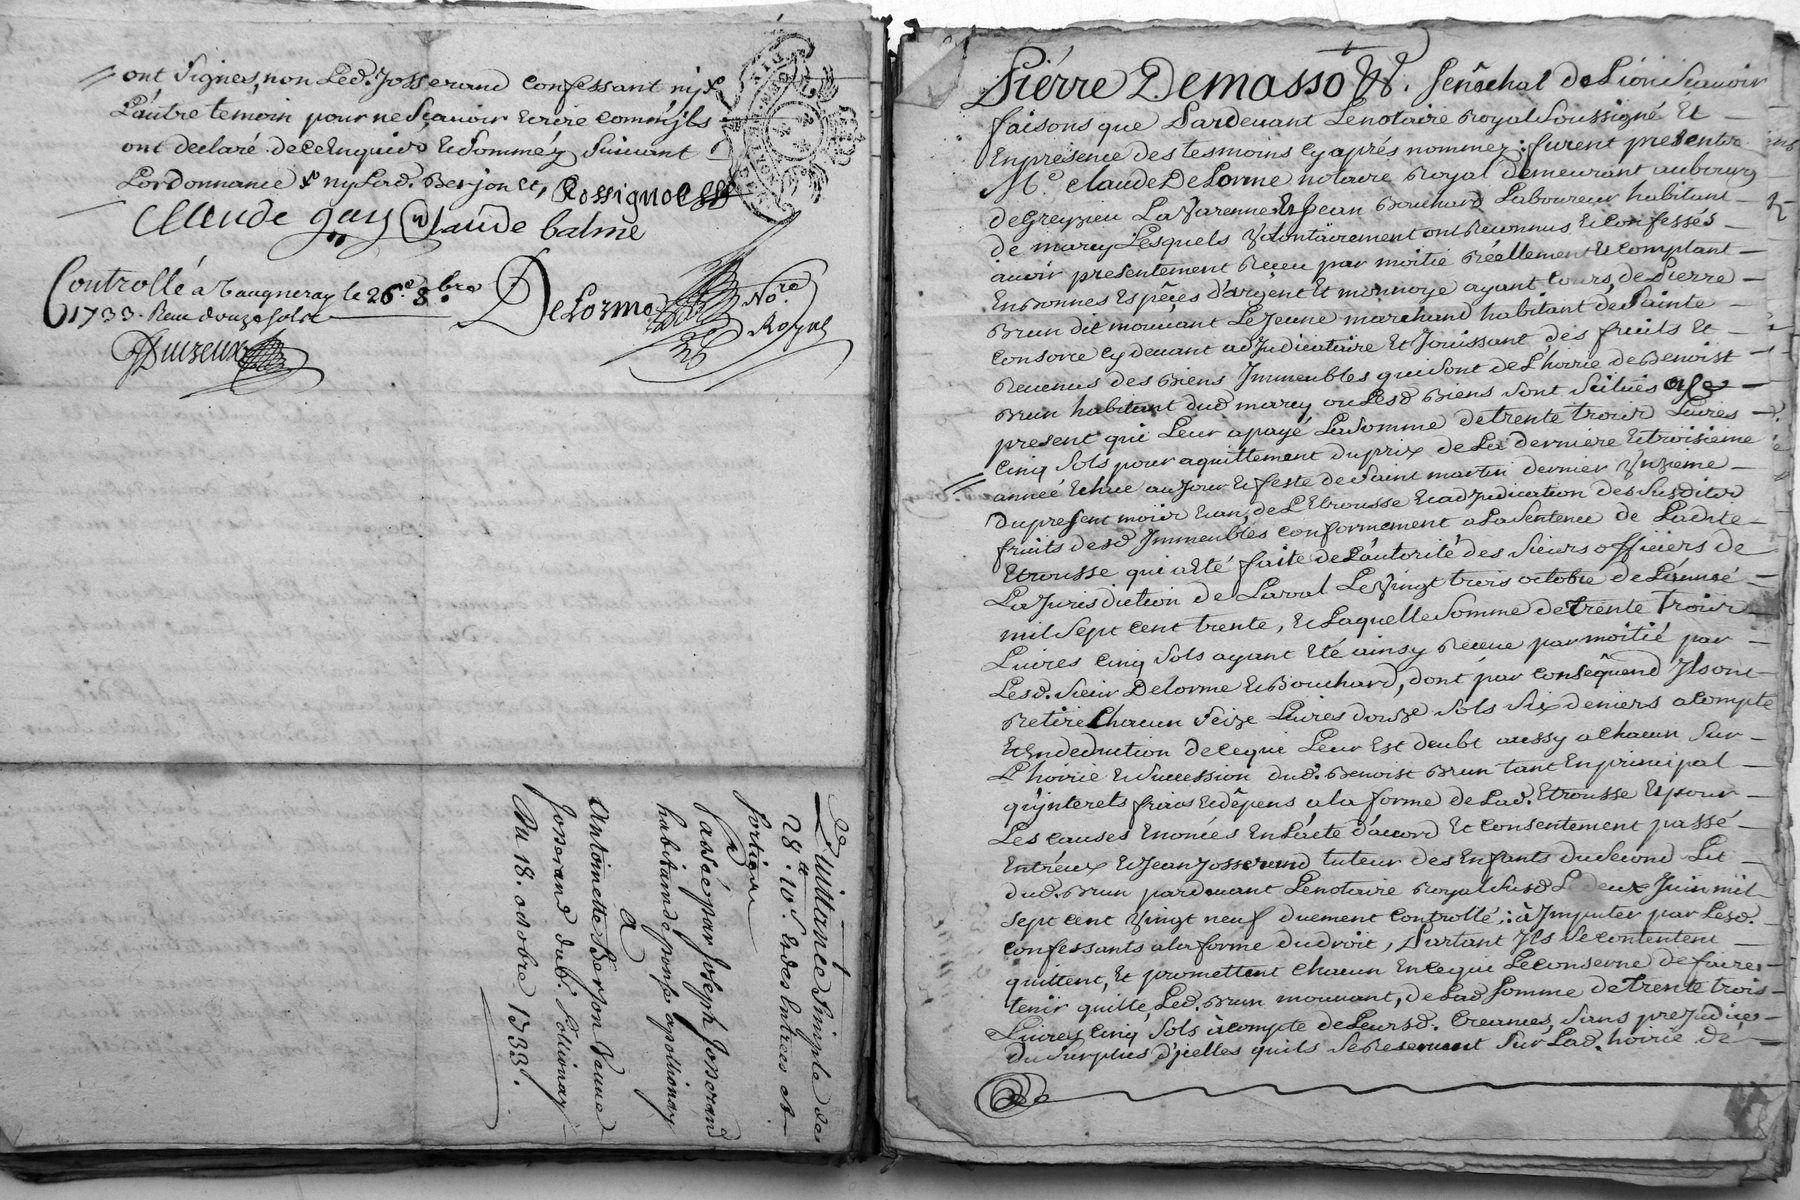 ont signes, non Led. Josserand confessant ny
L'autre temoin pour ne sçavoir Ecrire comm'jls
ont declaré de ce Enquis & sommés suivant
Lordonnance ny Lad. Berjon &, Rossignol
Claude gay Claude balme
Controllé à Vaugneray le 26e. 8bre
1733. Receu douze sols
Delorme No.re Royal
Duizeux
Quittance simple de
28.tt 10.s Endes Entrées et
sorties
Passée par Joseph Josserand
habitand de ponss apollionay
A
Antoinette Berjon veuve
Josserand dud. pollionay
Du 18. octobre 1733.
Piérre Demasso &. senêchal de Lion Scavoir
faisons que Pardevant Lenotaire Royal soussigné Et
Enpresence des tesmoins cy aprés nommez: furent presents
M.e claude Delorme notaire Royal demeurant aubourg
de Greyzieu La Varenne, & Jean Bouchard Laboureur habitant
de marcy Lesquels volontairement ont reconnus & confessés
avoir presentement Receu par moitié Réellement & comptant
En bonnes Espêces d'argent Et monnoye ayant cours, de Pierre
Brun dit mouvant Le Jeune marchand habitant de Sainte
Consorce cy devant adjudicataire Et Jouissant des fruits Et
Revenus des Biens Jmmeubles qui sont de L'hoirie de Benoist
Brun habitant dud marcy ou Lesd Biens sont scitués
present qui Leur a payé La somme de trente trois Livres
cinq sols pour aquittement du prix de La derniere & troisieme
année Echue au Jour & feste de Saint martin dernier unzieme
du present mois & an, de L'Etrousse & adjudication des susdits
fruits desd Jmmeubles conformement a La sentence de Ladite
Etrousse qui a Eté faite de L'autorité des sieurs officiers de
La Jurisdiction de Laval Le vingt trois octobre de L'année
mil sept cent trente, & Laquelle somme de trente trois
Livres cinq sols ayant Eté ainsy Receue par moitié par
Lesd. sieur Delorme & Bouchard, dont par consequend Jls ont
Retiré chacun seize Livres douze sols six deniers a compte
Et En deduction de ce qui Leur Est deubt aussy a chacun sur
L'hoirie & succession dud. Benoist Brun tant En principal
qu'jnterets frais & dépens a la forme de Lad. Etrousse & pour
Les causes Enoncés En L'acte d'acord Et consentement passé
Entréux & Jean Josserand tuteur des Enfants du second Lit
dud. Brun pardevant Lenotaire Royal susd Le deux Juin mil
sept cent vingt neuf duement controllé: à Jmputer par Lesd.
confessants a la forme du droit, Partant Jls se contentent
quittent, Et promettent chacun En ce qui Le conserne de faire
tenir quitte Led. Brun mouvant, de Lad somme de trente trois
Livres cinq sols à compte de Leursd. creances, sans prejudice
du surplus d'jcelles quils se Reservent sur Lad. hoirie de